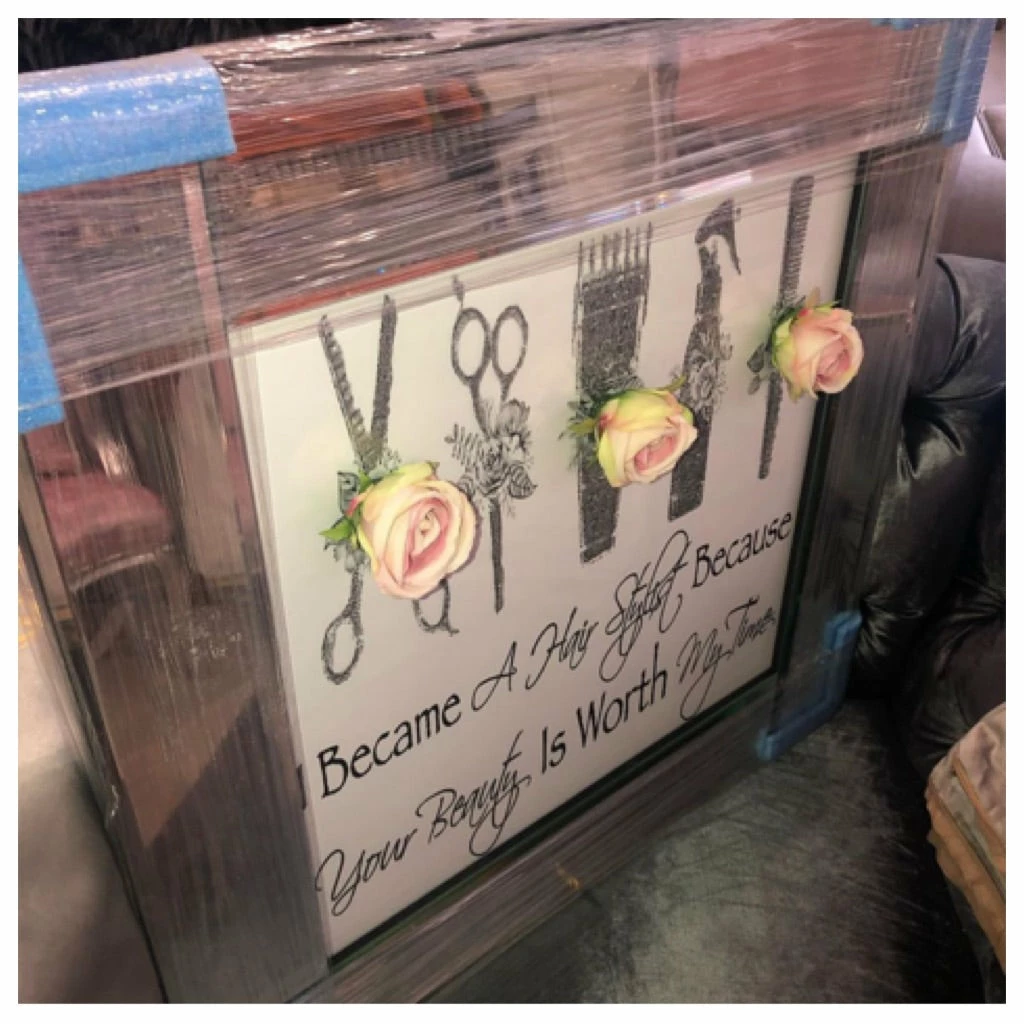 I Became A Hair Stylist Because
Your Beauty Is Worth My Time